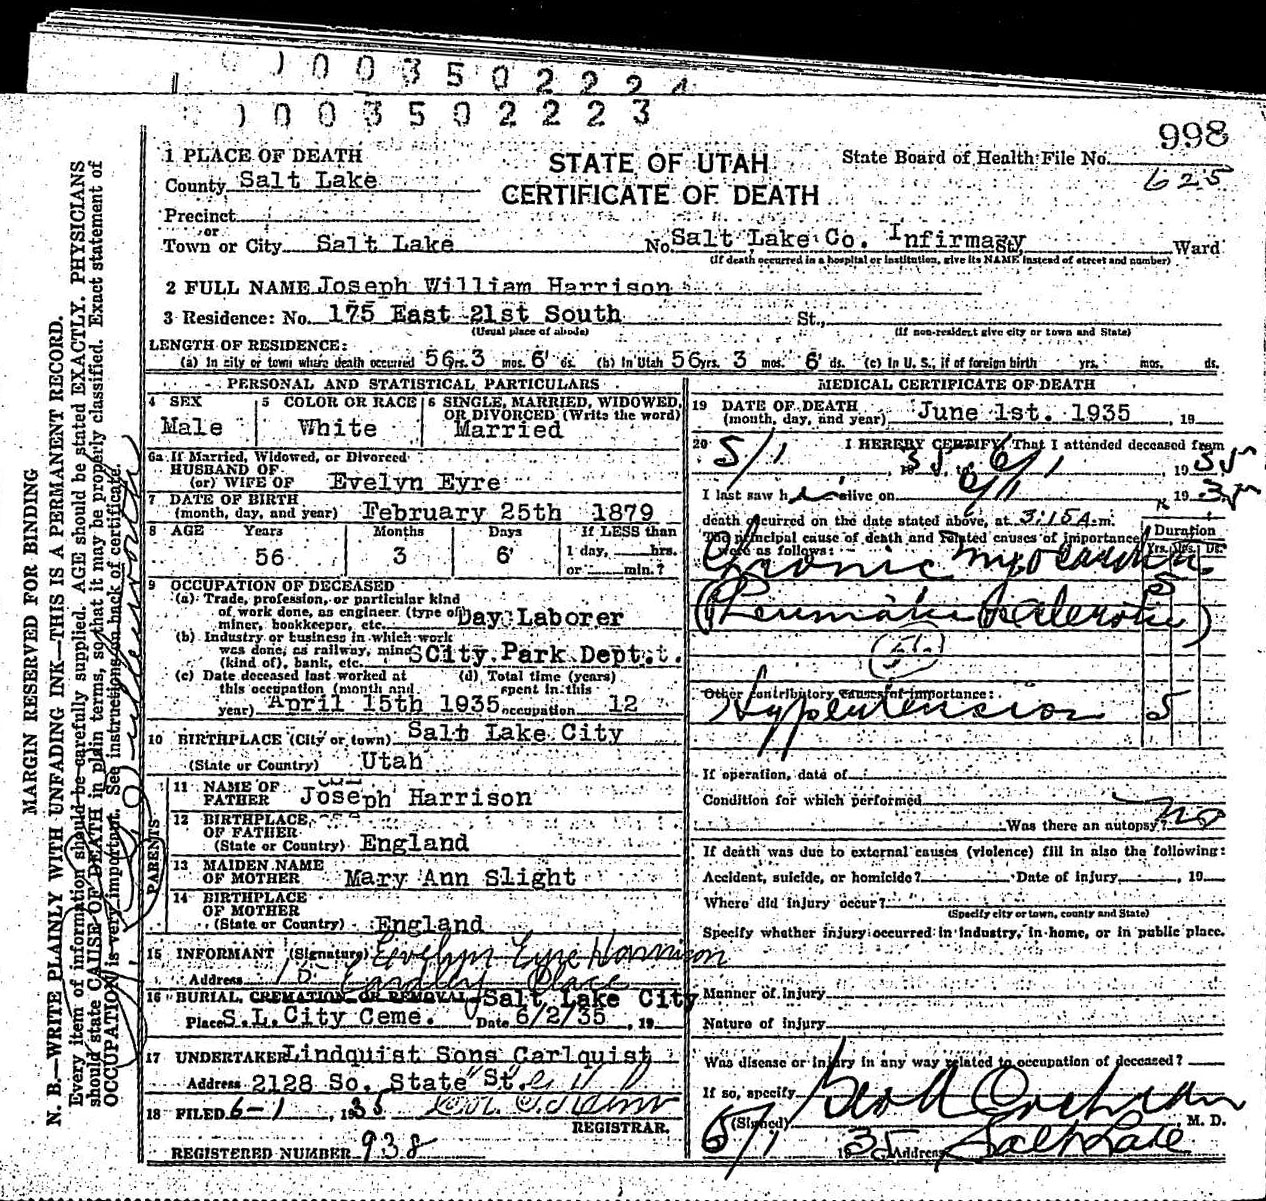 1 0 0 3 5 0 2 2 2
1 0 0 3 5 0 2 2 2 3
998
STATE OF UTAH
CERTIFICATE OF DEATH
State Board of Health File No.
625
1 PLACE OF DEATH
County Salt Lake
Precinct
or
Town or City Salt Lake No. Salt Lake Co. Infirmary Ward
(If death occurred in a hospital or institution, give its NAME instead of street and number)
2 FULL NAME Joseph William Harrison
3 Residence: No. 175 East 21st South St.,
(Usual place of abode) (If non-resident give city or town and State)
LENGTH OF RESIDENCE:
(a) In city or town where death occurred 56 yrs. 3 mos. 6 ds. (b) In Utah 56 yrs. 3 mos. 6 ds. (c) In U. S., if of foreign birth yrs. mos. ds.
PERSONAL AND STATISTICAL PARTICULARS
4 SEX
Male
5 COLOR OR RACE
White
6 SINGLE, MARRIED, WIDOWED,
OR DIVORCED (Write the word)
Married
6a If Married, Widowed, or Divorced
HUSBAND OF
(or) WIFE OF Evelyn Eyre
7 DATE OF BIRTH
(month, day, and year) February 25th 1879
8 AGE Years Months Days If LESS than
56 3 6 1 day, hrs.
or min.?
9 OCCUPATION OF DECEASED
(a) Trade, profession, or particular kind
of work done, as engineer (type of
miner, bookkeeper, etc. Day Laborer
(b) Industry or business in which work
was done, as railway, mine
(kind of), bank, etc. SCity Park Dept.
(c) Date deceased last worked at (d) Total time (years)
this occupation (month and spent in this
year) April 15th 1935 occupation 12
10 BIRTHPLACE (City or town) Salt Lake City
(State or Country) Utah
PARENTS
11 NAME OF
FATHER Joseph Harrison
12 BIRTHPLACE
OF FATHER
(State or Country) England
13 MAIDEN NAME
OF MOTHER Mary Ann Slight
14 BIRTHPLACE
OF MOTHER
(State or Country) England
15 INFORMANT (Signature) Evelyn Eyre Harrison
Address Place
16 BURIAL, CREMATION OR REMOVAL Salt Lake City
Place S.L.City Ceme. Date 6/2/35, 19
17 UNDERTAKER Lindquist Sons Carlquist
Address 2128 So. State St.
18 FILED 6-1, 1935
REGISTRAR.
REGISTERED NUMBER 938
MEDICAL CERTIFICATE OF DEATH
19 DATE OF DEATH
(month, day, and year) June 1st. 1935, 19
20 I HEREBY CERTIFY, That I attended deceased from
5/1, 1935 to 6/1, 1935
I last saw h alive on 6/1, 1935
death occurred on the date stated above, at 3:15A. m.
The principal cause of death and related causes of importance
were as follows:
Duration
Yrs. Mos. Ds.
5
Other contributory causes of importance:
Hypertension 5
If operation, date of
Condition for which performed
Was there an autopsy? no
If death was due to external causes (violence) fill in also the following:
Accident, suicide, or homicide? Date of injury, 19
Where did injury occur?
(Specify city or town, county and State)
Specify whether injury occurred in industry, in home, or in public place.
Manner of injury
Nature of injury
Was disease or injury in any way related to occupation of deceased?
If so, specify
(Signed) M. D.
6/1 1935 Address Salt Lake
MARGIN RESERVED FOR BINDING
N. B.—WRITE PLAINLY WITH UNFADING INK—THIS IS A PERMANENT RECORD.
Every item of information should be carefully supplied. AGE should be stated EXACTLY. PHYSICIANS
should state CAUSE OF DEATH in plain terms, so that it may be properly classified. Exact statement of
OCCUPATION is very important. See instructions on back of certificate.